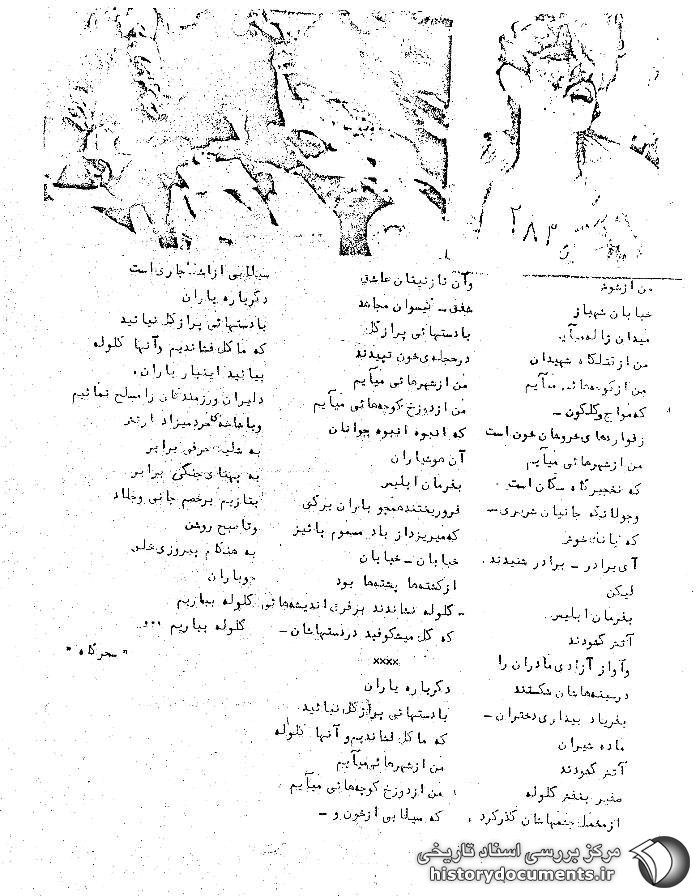 ۲۸۳
من از شوش
خیابان شهباز
میدان ژاله میآیم
من از قتلگاه شهیدان
من از کوچه‌هائی میآیم
که مواج و گلگون ـ
ز فواره‌های خروشان خون است
من از شهرهائی میآیم
که نخجیرگاه سگان است
وجولانگه جانیان شریری ـ
که
آی برادر ـ برادر شنیدند.
لیکن
بفرمان ابلیس
آتش گشودند
وآواز آزادی مادران را
درسینه‌هاشان شکستند
بفریاد بیداری دختران ـ
ماده شیران
آتش گشودند
صفیر گلوله
ازمخمل چشمهاشان گذر کرد
وآن نازنینان عاشق
شفق ـ گیسوان مجاهد
بادستهائی پرازگل
درحجله‌ی خون تپیدند
من از شهرهائی میآیم
من ازدوزخ کوچه‌هائی میآیم
که انبوه انبوه جوانان
آن هوشیاران
بفرمان ابلیس
فروریختند همچو باران برگی
که میریزد از باد مسموم پائیز
خیابان ـ خیابان
ازکشته‌ها پشته‌ها بود
گلوله نشاندند برفرق اندیشه‌هائی
که گل میشکوفید دردستهاشان ـ
xxxx
دگرباره یاران
بادستهائی پرازگل نیائید
که ما گل فشاندیم و آنها گلوله
من از شهرهائی میآیم
من ازدوزخ کوچه‌هائی میآیم
که سیلابی ازخون و ـ
سیلابی ازاشک جاری است
دگرباره یاران
بادستهائی پرازگل نیائید
که ما گل فشاندیم وآنها گلوله
بیائید اینبار یاران
دلیران ورزمندگان را مسلح نمائیم
به شلیک حرفی برابر
به پهنای جنگی برابر
بتازیم برخصم جانی وجلاد
وتا صبح روشن
به هنگام پیروزی خلق
چو باران
گلوله بباریم
گلوله بباریم ...
" سحرگاه "
مرکز بررسی اسناد تاریخی
historydocuments.ir